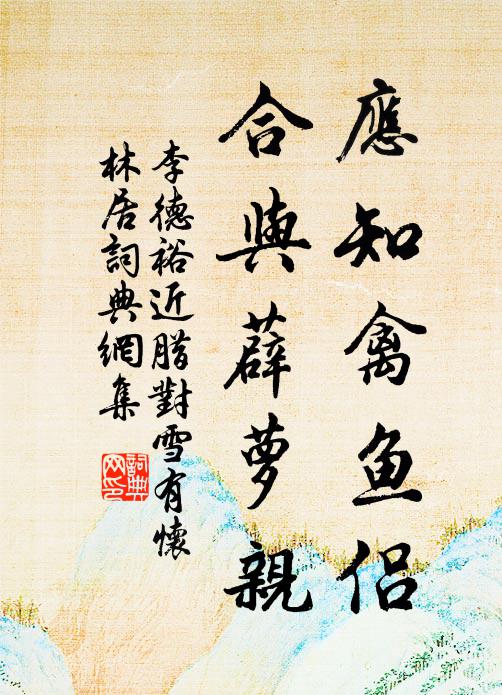 應知禽鱼侣
合與薜萝親
李德裕近腊對雪有懷
林居詞典網集
詞典
网印